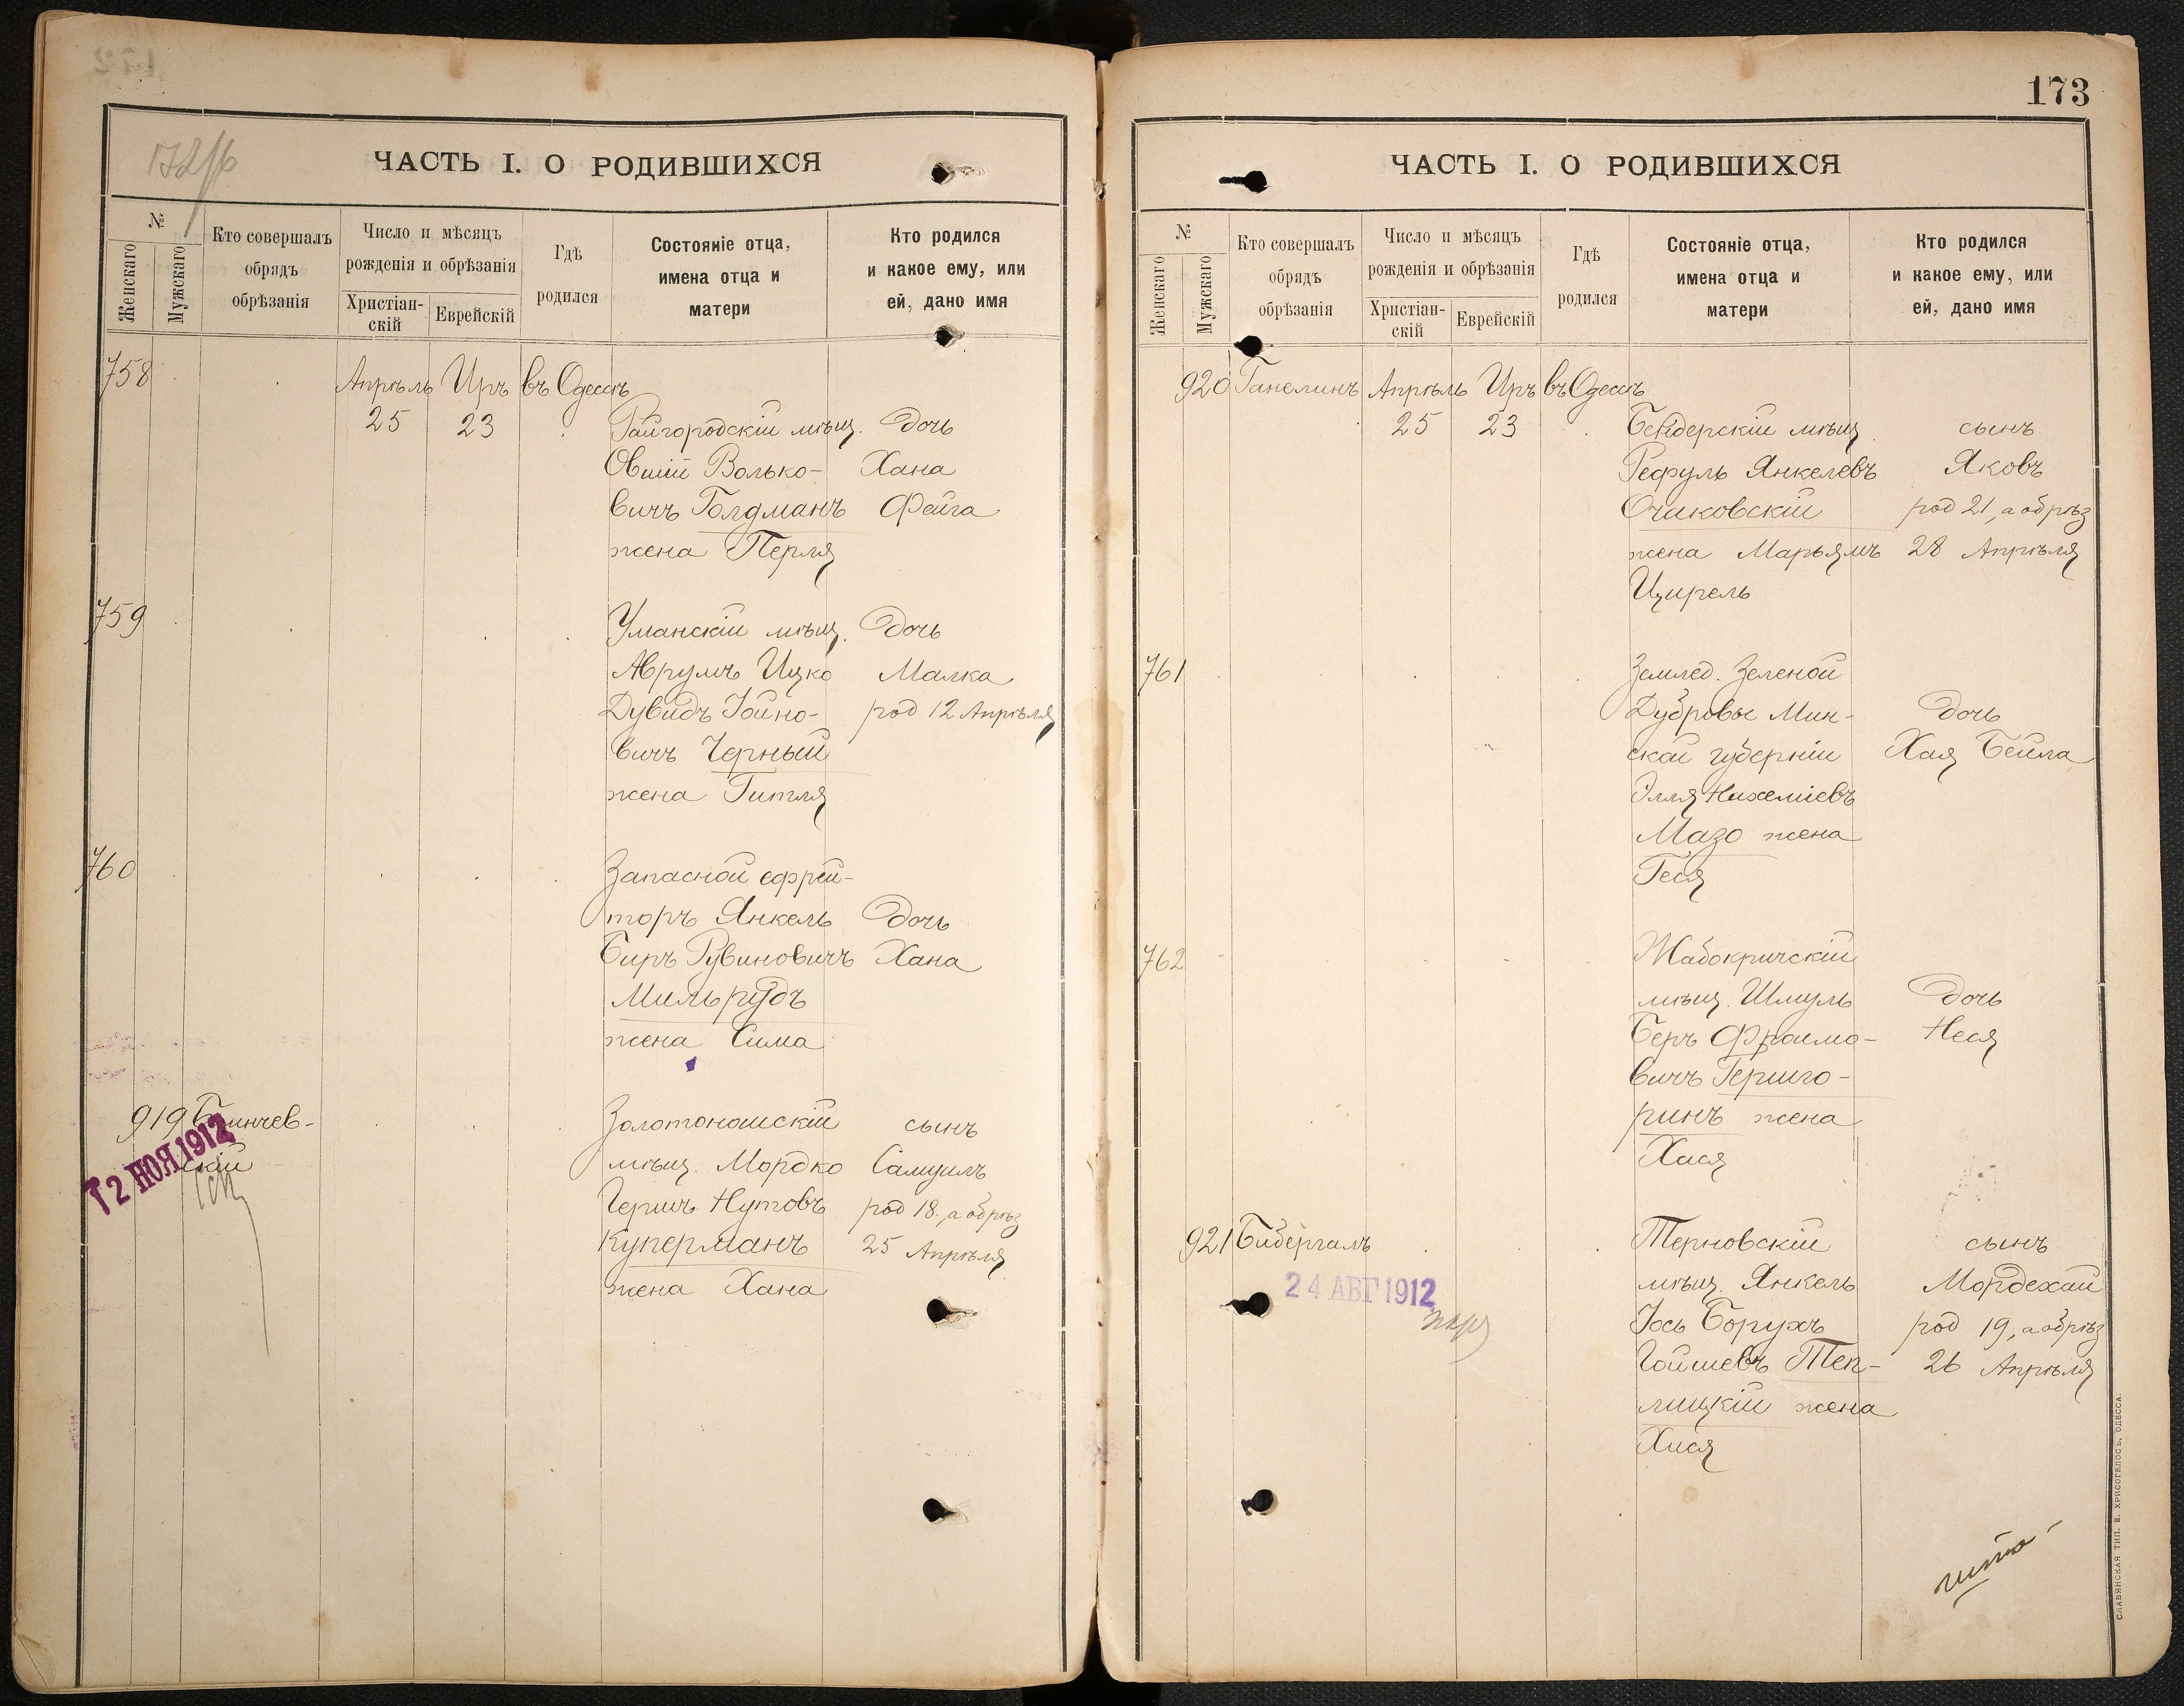 ЧАСТЬ I. О РОДИВШИХСЯ
№
Женскаго
Мужскаго
Кто совершалъ
обрядъ
обрѣзанія
Число и мѣсяцъ
рожденія и обрѣзанія
Христіан-
скій
Еврейскій
Гдѣ
родился
Состояніе отца,
имена отца и
матери
Кто родился
и какое ему, или
ей, дано имя
758 Апрѣль Иръ въ Одессѣ
25 23 Райгородскій мѣщ. дочь
Овшій Волько- Хана
вичъ Голдманъ Фейга
жена Перля
759
Уманскій мѣщ. дочь
Аврумъ Ицко Малка
Дувидъ Іойно- род 12 Апрѣля
вичъ Черный
жена Гитля
760
Запасной ефрей-
торъ Янкель дочь
Беръ Рувиновичъ Хана
Мильрудъ
жена Сима
919 Бѣличев-
скій
12 НОЯ 1912
Золотоношскій сынъ
мѣщ. Мордко Самуилъ
Гершъ Нутовъ род 18, а обрѣз
Куперманъ 25 Апрѣля
жена Хана
173
ЧАСТЬ I. О РОДИВШИХСЯ
№
Женскаго
Мужскаго
Кто совершалъ
обрядъ
обрѣзанія
Число и мѣсяцъ
рожденія и обрѣзанія
Христіан-
скій
Еврейскій
Гдѣ
родился
Состояніе отца,
имена отца и
матери
Кто родился
и какое ему, или
ей, дано имя
920 Ганелинъ Апрѣль Иръ въ Одессѣ
25 23 Бендерскій мѣщ сынъ
Рефуль Янкелевъ Яковъ
Очаковскій род 21, а обрѣз
жена Марьямъ 28 Апрѣля
Цирель
761 Землед. Зеленой
Дубровы Мин- дочь
ской губерніи Хая Бейла
Элля Нахеміевъ
Мазо жена
Геся
762 Жабокричскій
мѣщ. Шмуль дочь
Беръ Фроимо- Неся
вичъ Гершго-
ринъ жена
Хася
921 Бибергалъ Терновскій сынъ
24 АВГ 1912
мѣщ. Янкель Мордехай
Іось Борухъ род 19, а обрѣз
Гойшевъ Теп- 26 Апрѣля
лицкій жена
Хися
СЛАВЯНСКАЯ ТИП. Е. ХРИСОГЕЛОСЪ, ОДЕССА.